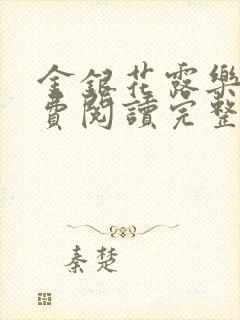 金銀花露樂
費閱讀完整
秦楚